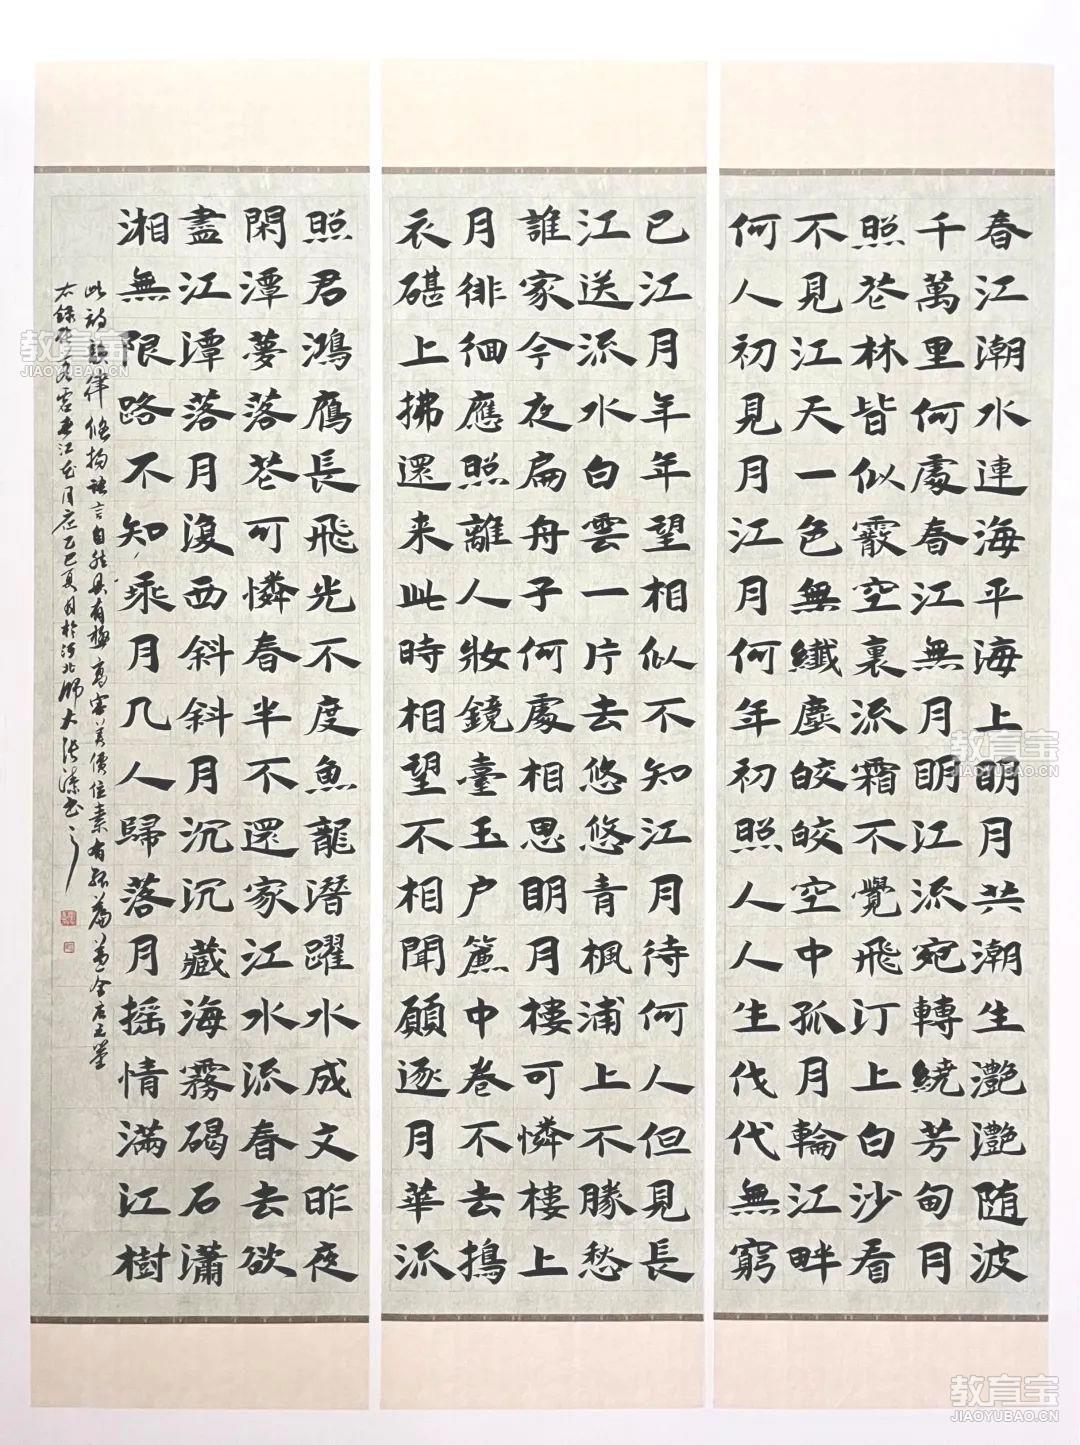 春江潮水連海平海上眀月共潮生灔灔随波
千萬里何處春江無月眀江流宛轉繞芳甸月
照花林皆似霰空裏流霜不覺飛汀上白沙看
不見江天一色無纖塵皎皎空中孤月輪江畔
何人初見月江月何年初照人人生代代無窮
已江月年年望相似不知江月待何人但見長
江送流水白雲一片去悠悠青楓浦上不勝愁
誰家今夜扁舟子何處相思眀月樓可憐樓上
月徘徊應照離人妝鏡臺玉户簾中卷不去搗
衣碪上拂還来此時相望不相聞願逐月華流
照君鴻鴈長飛光不度魚龍潛躍水成文昨夜
閑潭夢落花可憐春半不還家江水流春去欲
盡江潭落月復西斜斜月沉沉藏海霧碣石瀟
湘無限路不知乘月几人歸落月摇情滿江樹
此詩韻律悠揚語言自然具有極高審美價值素有孤篇蓋全唐之譽
右録張若虚春江花月夜乙巳夏月於河北師大
教育宝
JIAOYUBAO.CN
教育宝
JIAOYUBAO.CN
教育宝
JIAOYUBAO.CN